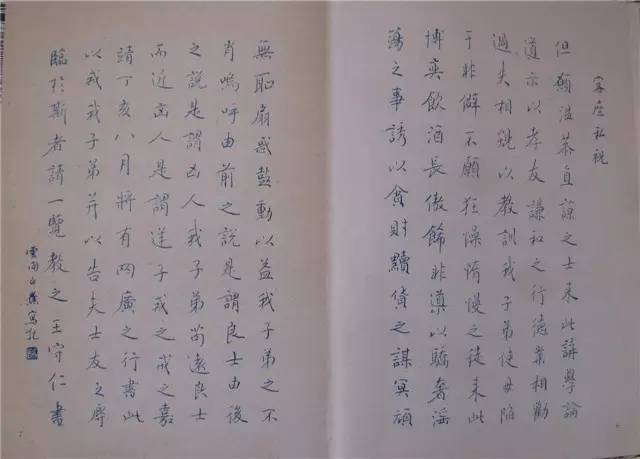 客座私祝
但願溫恭直諒之士来此講學論
道示以孝友謙和之行德業相勸
過失相規以教訓我子弟使毋陷
于非僻不願狂懆惰慢之徒来此
博奕飲酒長傲飾非導以驕奢淫
蕩之事誘以貪財黷貨之謀冥頑
無恥扇惑鼓動以益我子弟之不
肖嗚呼由前之說是謂良士由後
之說是謂凶人我子弟苟遠良士
而近凶人是謂逆子戒之戒之嘉
靖丁亥八月將有兩廣之行書此
以戒我子弟并以告夫士友之辱
臨於斯者請一覽教之王守仁書
雲間白蕉寫